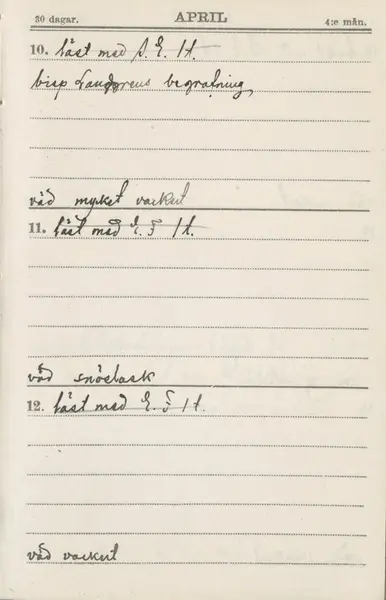 30 dagar. APRIL 4:e mån.
10. läst med S. E. 1 t.
bisp Landgrens begrafning
väd mycket vackert
11. läst med E. F 1 t.
väd snöslask
12. läst med E. F 1 t.
väd vackert